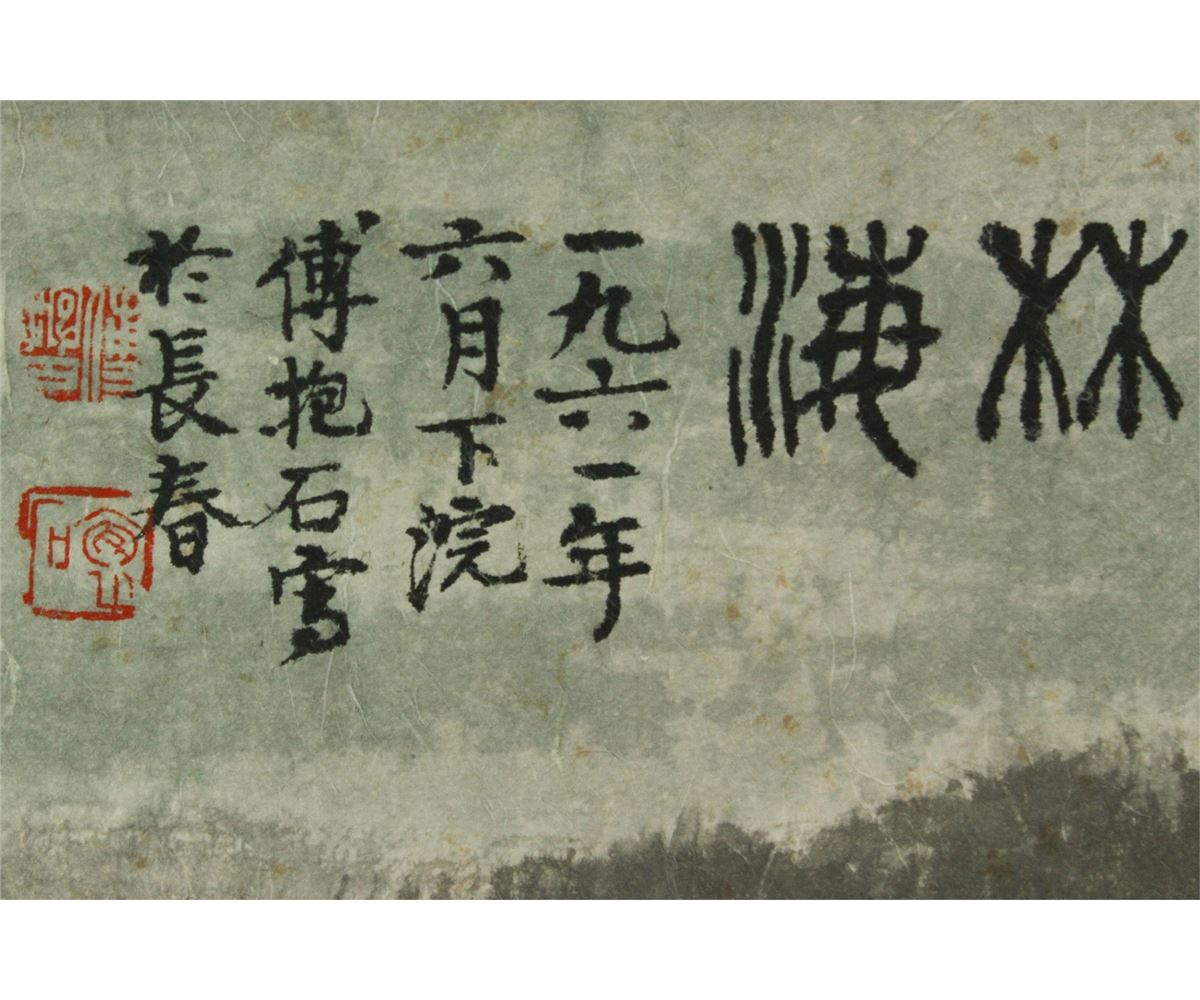 林海
一九六一年
六月下浣
傅抱石寫
於長春